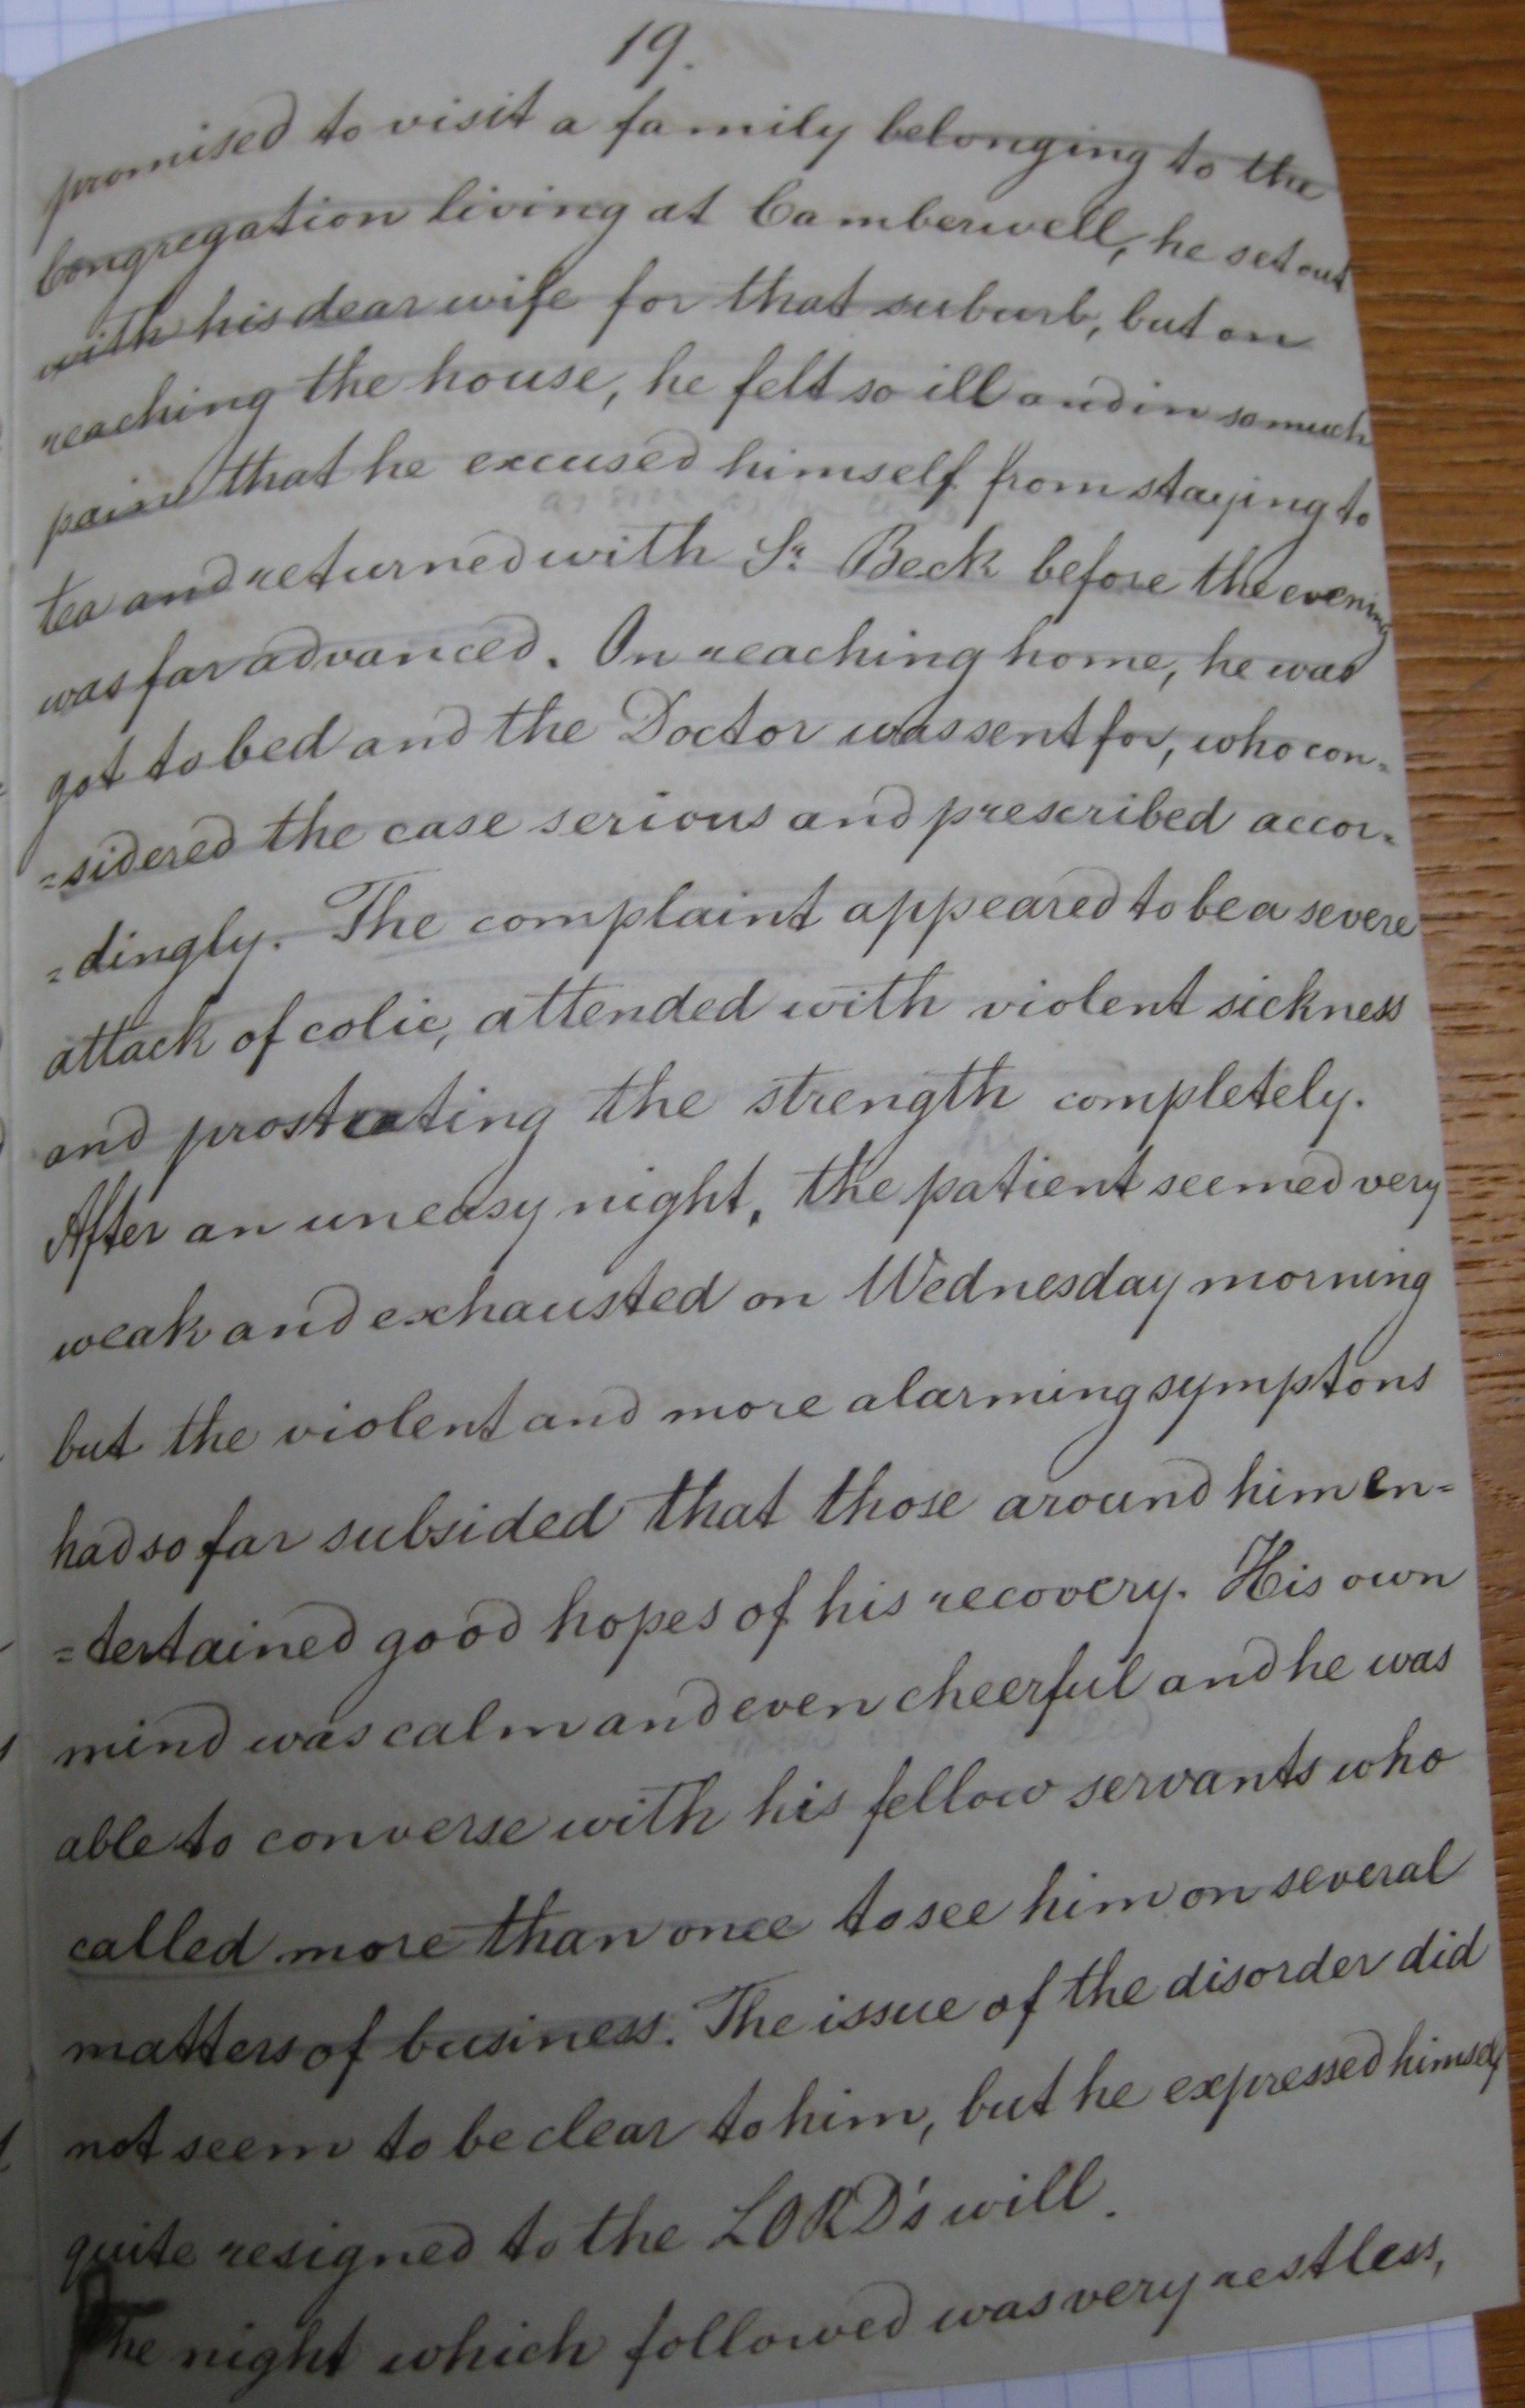 19.
promised to visit a family belonging to the
Congregation living at Camberwell, he set out
with his dear wife for that suburb, but on
reaching the house, he felt so ill and in so much
pain that he excused himself from staying to
tea and returned with Sr. Beck before the evening
was far advanced. On reaching home, he was
got to bed and the Doctor was sent for, who con=
=sidered the case serious and prescribed accor=
=dingly. The complaint appeared to be a severe
attack of colic, attended with violent sickness
and prostrating the strength completely.
After an uneasy night, the patient seemed very
weak and exhausted on Wednesday morning
but the violent and more alarming symptons
had so far subsided that those around him en=
=tertained good hopes of his recovery. His own
mind was calm and even cheerful and he was
able to converse with his fellow servants who
called more than once to see him on several
matters of business. The issue of the disorder did
not seem to be clear to him, but he expressed himself
quite resigned to the LORD's will.
The night which followed was very restless,